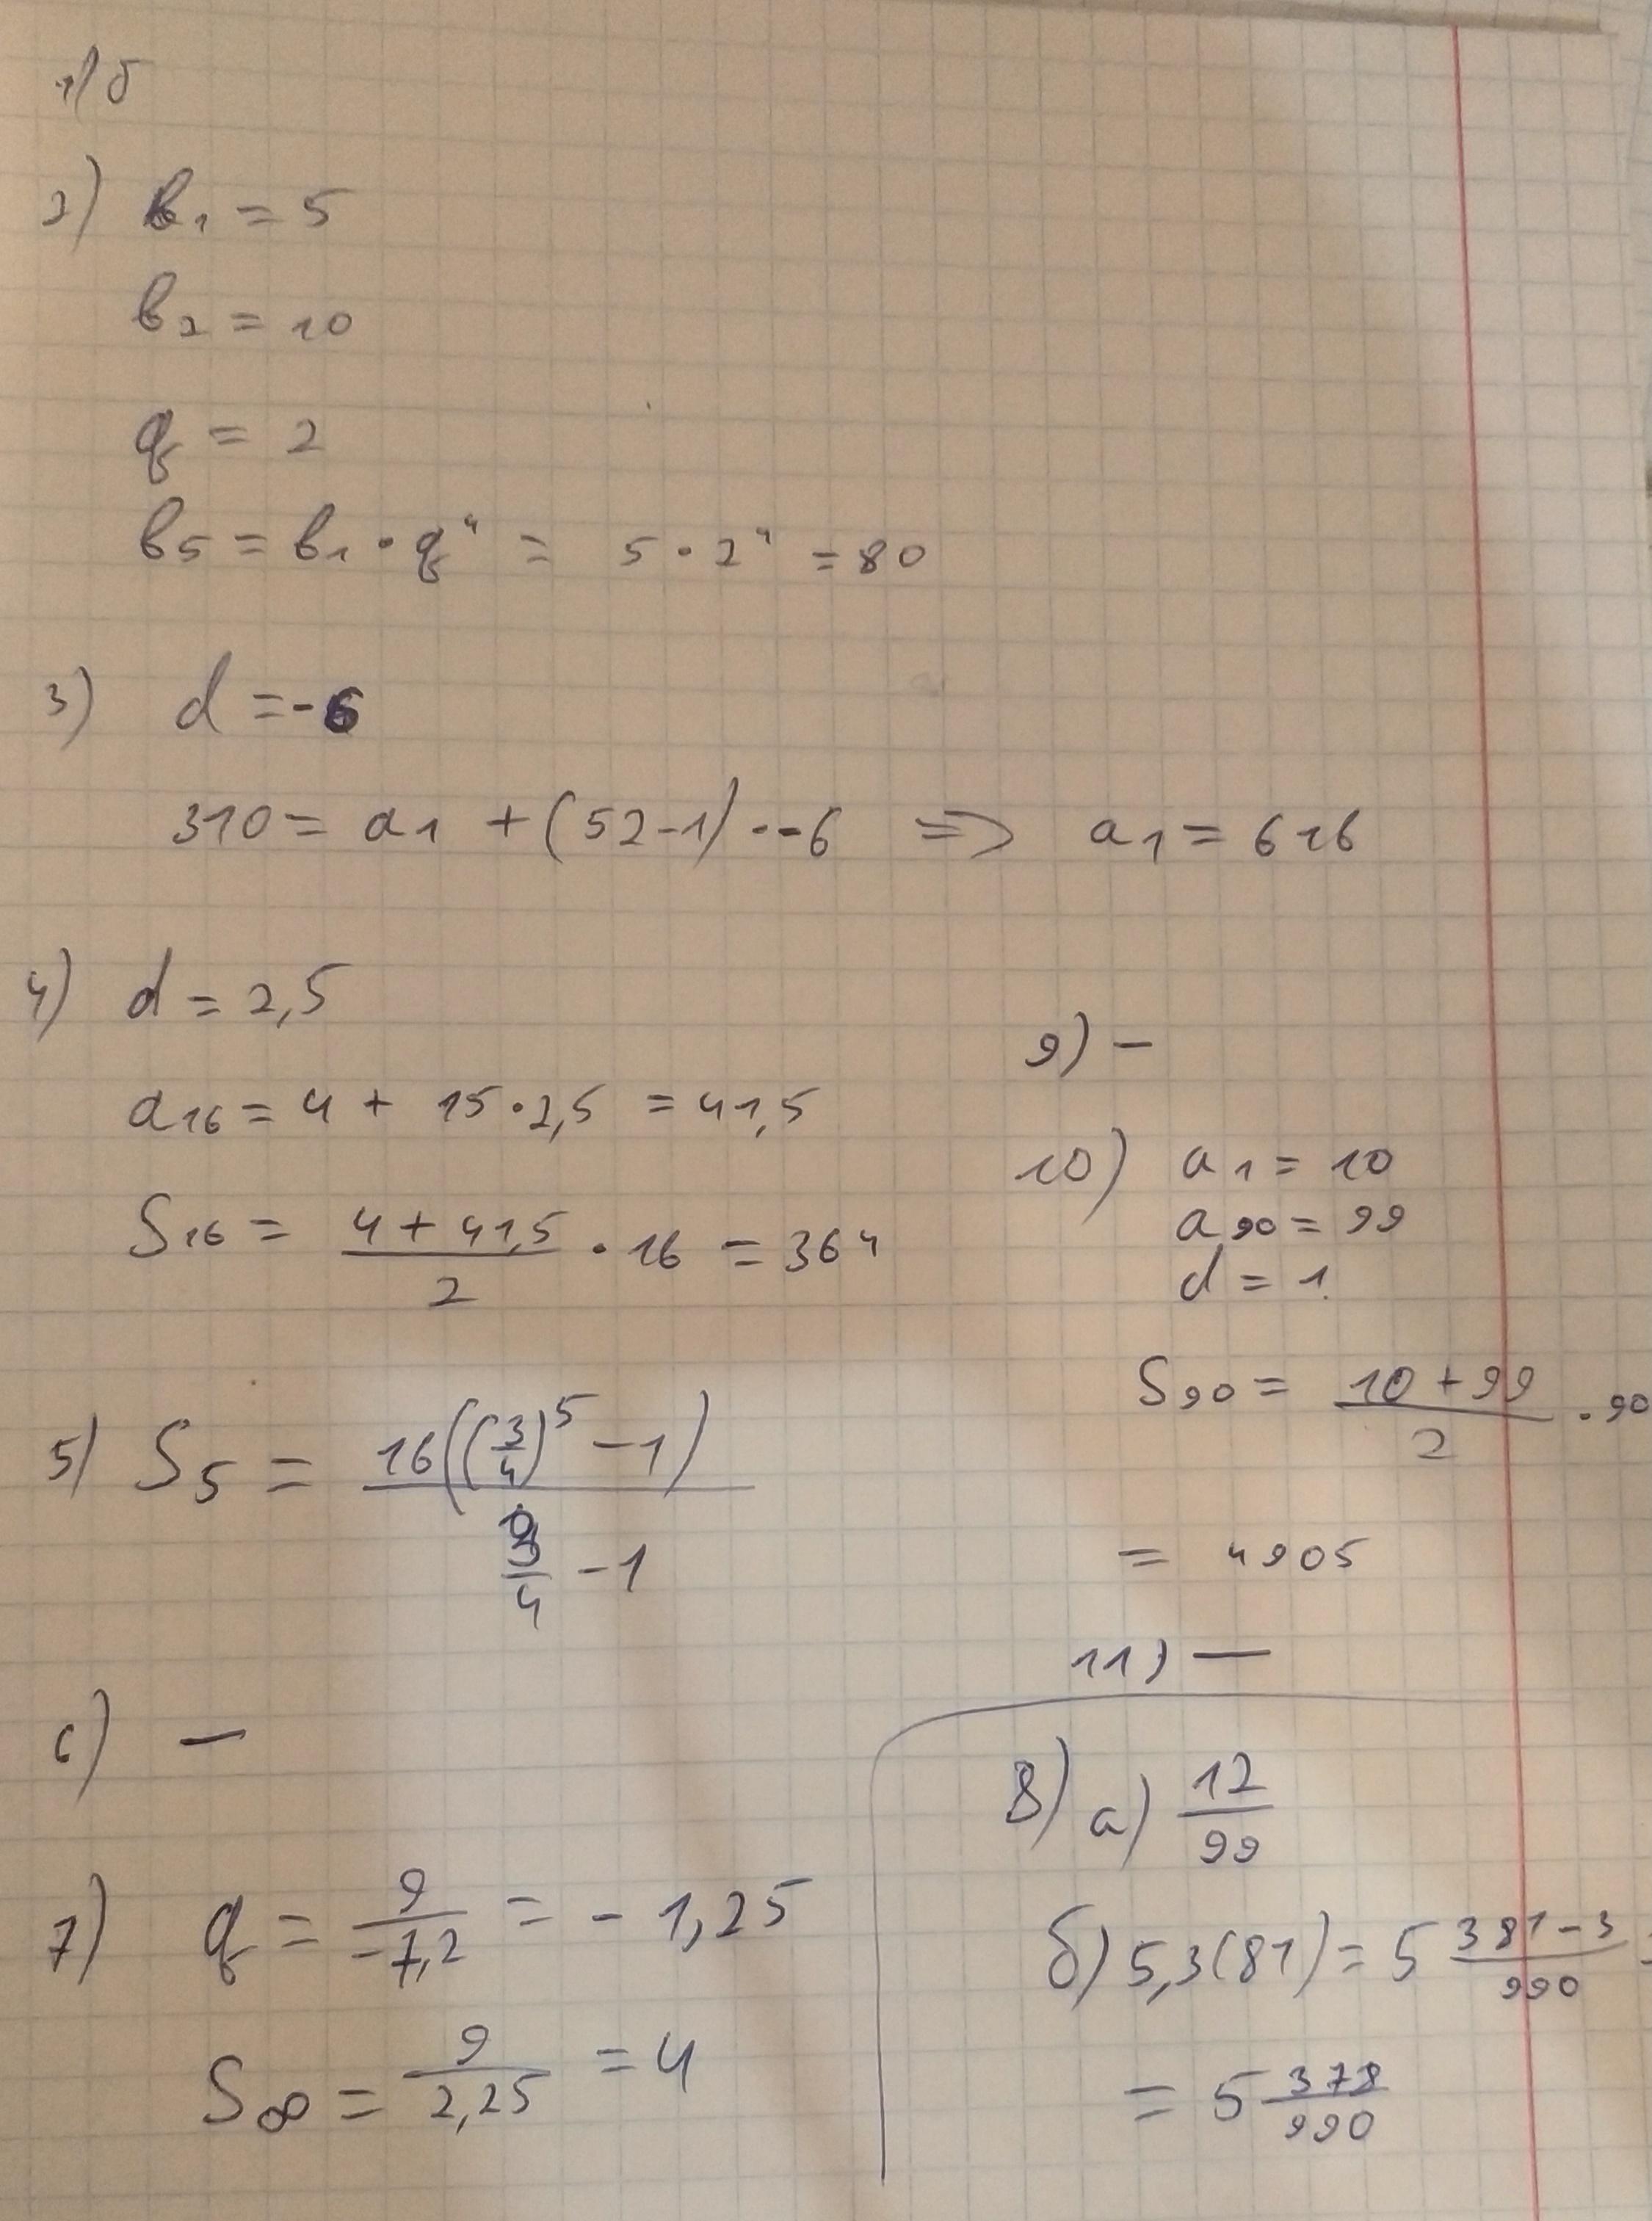 1) б
2) b₁ = 5
b₂ = 10
q = 2
b₅ = b₁ · q⁴ = 5 · 2⁴ = 80
3) d = -6
310 = a₁ + (52-1) · -6 => a₁ = 616
4) d = 2,5
a₁₆ = 4 + 15 · 2,5 = 41,5
S₁₆ = (4 + 41,5)/2 · 16 = 364
5) S₅ = 16((3/4)⁵ - 1)/(3/4 - 1)
6) —
7) q = 9/-7,2 = -1,25
S∞ = 9/2,25 = 4
9) —
10) a₁ = 10
a₉₀ = 99
d = 1
S₉₀ = (10 + 99)/2 · 90
= 4905
11) —
8) a) 12/99
б) 5,3(81) = 5 (381-3)/990 =
= 5 378/990